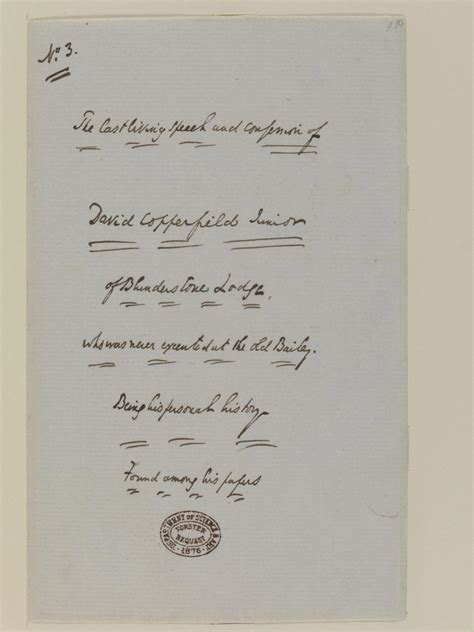 No. 3.
The last living speech and confession of
David Copperfield Junior
of Blunderstone Lodge,
who was never executed at the old Bailey.
Being his personal history
Found among his papers
DEPARTMENT OF SCIENCE & ART
FORSTER
BEQUEST
1876